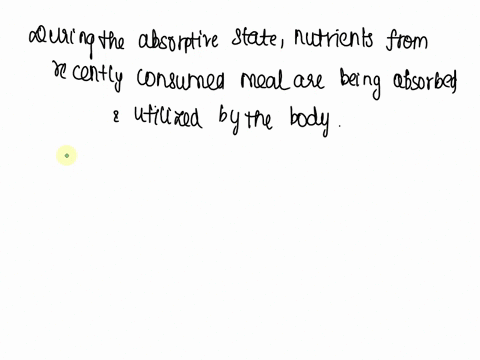 During the absorptive state, nutrients from
recently consumed meal are being absorbed
& utilized by the body.